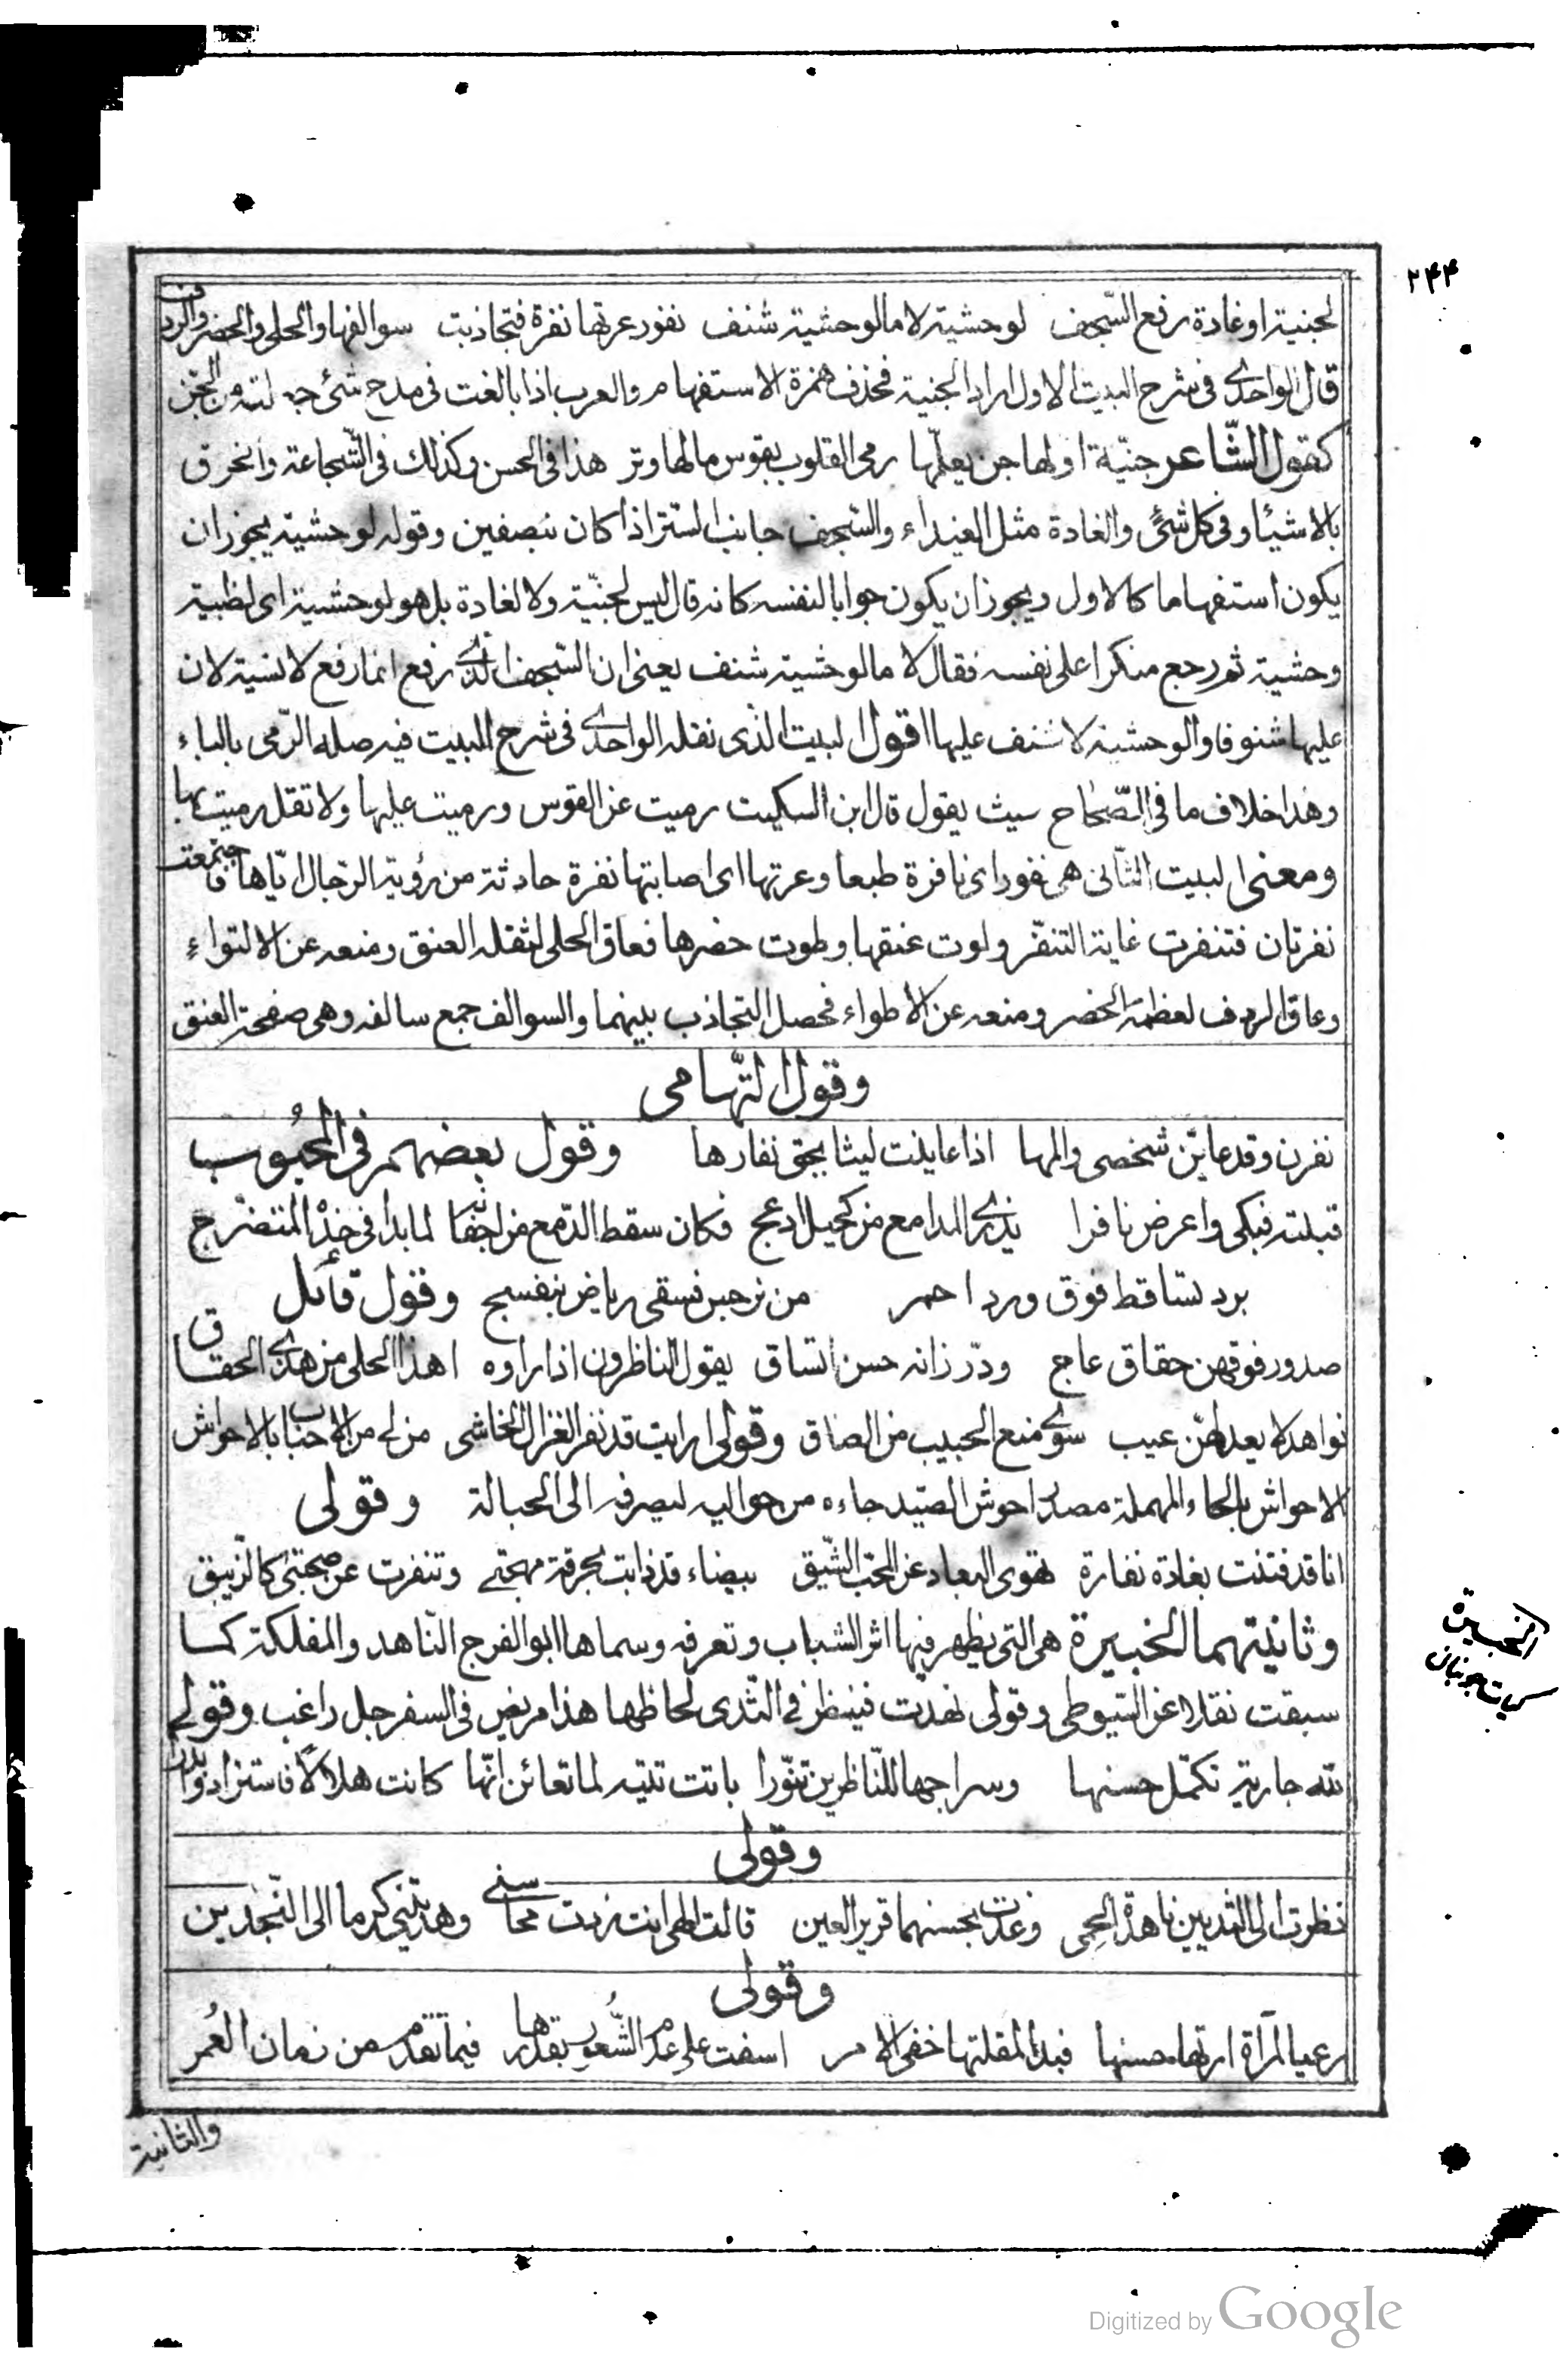 ٢٤٤
لجنية او غادة رفع السّجف لوحشية لا ما لوحشية شنف نفور عرتها نفرة فتجاذبت سوالفها والحلى والخصر والردف
قال الواحدي في شرح البيت الاول اراد الجنية فحذف همزة الاستفهام والعرب اذا بالغت في مدح شئ جعلته من الجنّ
كقول الشّاعر جنّيّة اولها جن يعلّمها رمى القلوب بقوس مالها وتر هذا في الحسن وكذلك في الشّجاعة والخرق
بالاشيا وفي كل شئ والغادة مثل الغيداء والسّجف جانب الستر اذا كان بنصفين وقوله لوحشية يجوز ان
يكون استفهاما كالاول ويجوز ان يكون جوابا لنفسه كانه قال ليس لجنّية ولا لغادة بل هو لوحشية اى لظبية
وحشية ثم رجع منكرا على نفسه فقال لا ما لوحشية شنف يعنى ان السّجف الذي رفع انما رفع لانسية لان
عليها شنوفا والوحشية لا شنف عليها اقول البيت الذى نقله الواحدي في شرح البيت فيه صلة الرّمى بالباء
وهذا خلاف ما في الصّحاح سيث يقول قال ابن السكيت رميت عن القوس ورميت عليها ولا تقل رميت بها
ومعنى البيت الثّانى هى نفور اى نافرة طبعا وعرتها اى اصابتها نفرة حادثة من رؤية الرّجال ايّاها فاجتمعت
نفرتان فتنفرت غاية التنفّر ولوت عنقها وطوت خصرها فعاق الحلى لثقله العنق ومنعه عن الالتواء
وعاق الردف لعظمه الخصر ومنعه عن الاطواء فحصل التجاذب بينهما والسوالف جمع سالفه وهى صفحة العنق
وقول التّهامى
نفرن وقد عاينّ شخصى والمها اذا عاينت ليثا يحق نفارها وقول بعضهم في المحبُوب
قبلته فبكى واعرض نافرا يذري المدامع من كحيل ادعج فكان سقط الدّمع من اجفانه لما بدا في خدّه المتضرّج
برد تساقط فوق ورد احمر من نرجس فسقى رياض بنفسج وقول قائل
صدور فوقهن حقاق عاج ودرّ زانه حسن اتساق يقول الناظرون اذا راوه اهذا الحلى من هذي الحقاق
نواهد لا يعد لهنّ عيب سوي منع الحبيب من العناق وقولى ارايت قد نفر الغزال الخاشى من له من الاحباب بالاحواش
الاحواش بالحاء المهملة مصدر احوش الصّيد جاءه من حواليه ليصرفه الى الحبالة وقولى
انا قد فتنت بغادة نفارة تهوى البعاد عن المحبّ الشّيق بيضاء قد ذابت بحرقة مهجتى وتنفرت عن صحبتى كالزّيبق
وثانيتهما الخبيرة هى التى يظهر فيها اثر الشباب وتعرفه وسماها ابو الفرج النّاهد والمفلكة كما
سبقت نقلا عن السّيوطى وقولى نهدت فينظر في الثّدى لحاظها هذا مريض في السفرجل راغب وقولى
لله جارية تكمّل حسنها وسراجها للنّاظرين تنوّرا باتت تتيه لما تعائن انّها كانت هلالا فاستزادوا بدرا
وقولى
نظرت الى الثديين ناهدة الحمى وغدت بحسنهما قرير العين قالت الهى انت زدت محاسنى وهديتنى كرما الى النّجدين
وقولى
رعيا لمرآة ارتها حسنها فبدا لمقلتها خفى الامر اسفت على عدم الشّعُور بقدرها فيما تقدّم من زمان العُمر
والثانية
الخبيرة